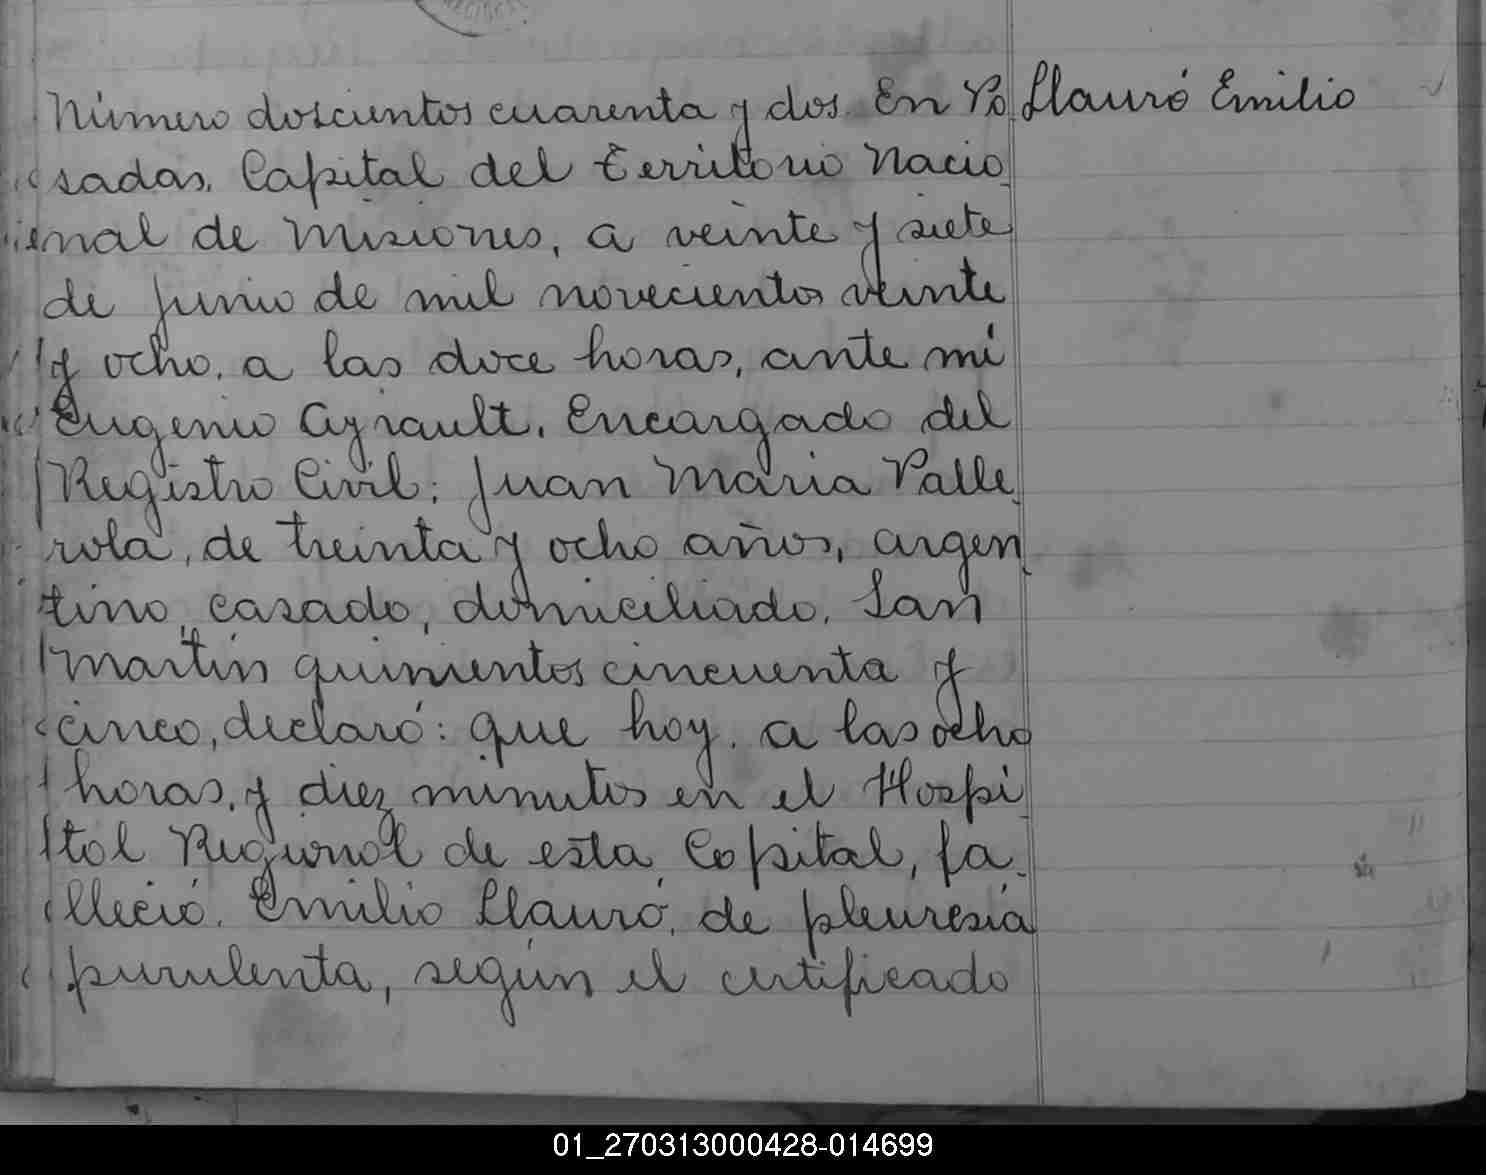 Número doscientos cuarenta y dos. En Po
Llauró Emilio
sadas, Capital del Territorio Nacio
nal de Misiones, a veinte y siete
de Junio de mil novecientos veinte
y ocho, a las doce horas, ante mí
Eugenio Ayrault, Encargado del
Registro Civil: Juan Maria Valle
rola, de treinta y ocho años, argen
tino, casado, domiciliado, San
Martín quinientos cincuenta y
cinco, declaró: que hoy, a las ocho
horas, y diez minutos en el Hospi
tal Regional de esta Capital, fa
lleció, Emilio Llauró, de pleuresía
purulenta, según el certificado
01_270313000428-014699